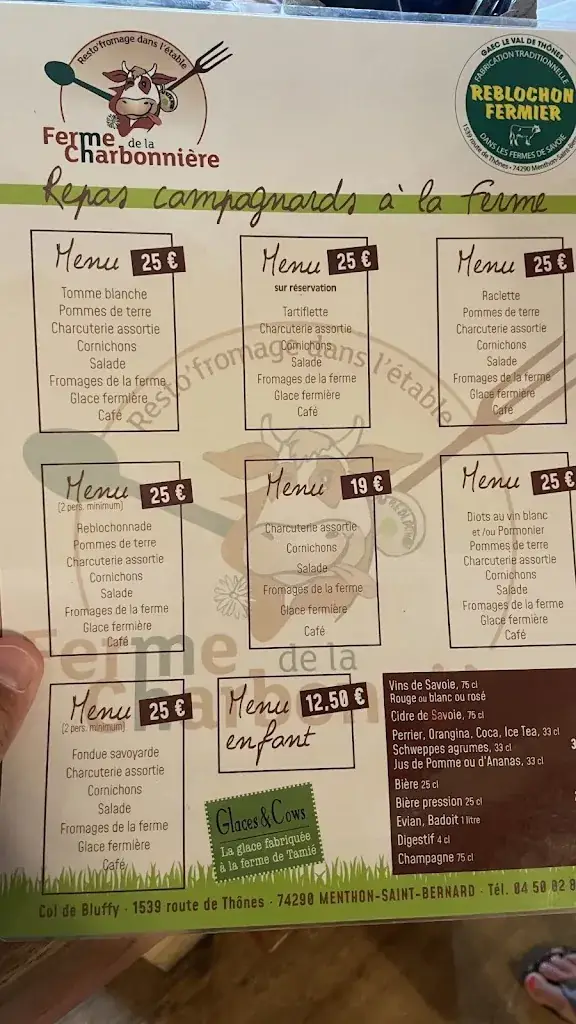 Resto'fromage dans l'étable
Ferme de la
Charbonnière
GAEC LE VAL DE THÔNES
FABRICATION TRADITIONNELLE
REBLOCHON
FERMIER
DANS LES FERMES DE SAVOIE
1539 route de Thônes • 74290 Menthon-Saint-Be
Repas campagnards à la ferme
Menu 25 €
Tomme blanche
Pommes de terre
Charcuterie assortie
Cornichons
Salade
Fromages de la ferme
Glace fermière
Café
Menu 25 €
sur réservation
Tartiflette
Charcuterie assortie
Cornichons
Salade
Fromages de la ferme
Glace fermière
Café
Menu 25 €
Raclette
Pommes de terre
Charcuterie assortie
Cornichons
Salade
Fromages de la ferme
Glace fermière
Café
Resto'fromage dans l'étable
Menu 25 €
(2 pers. minimum)
Reblochonnade
Pommes de terre
Charcuterie assortie
Cornichons
Salade
Fromages de la ferme
Glace fermière
Café
Menu 19 €
Charcuterie assortie
Cornichons
Salade
Fromages de la ferme
Glace fermière
Café
Menu 25 €
Diots au vin blanc
et /ou Pormonier
Pommes de terre
Charcuterie assortie
Cornichons
Salade
Fromages de la ferme
Glace fermière
Café
Ferme de la
Charbonnière
Menu 25 €
(2 pers. minimum)
Fondue savoyarde
Charcuterie assortie
Cornichons
Salade
Fromages de la ferme
Glace fermière
Café
Menu 12.50 €
enfant
Glaces & Cows
La glace fabriquée
à la ferme de Tamié
Vins de Savoie, 75 cl
Rouge ou blanc ou rosé
Cidre de Savoie, 75 cl
Perrier, Orangina, Coca, Ice Tea, 33 cl
Schweppes agrumes, 33 cl
Jus de Pomme ou d'Ananas, 33 cl
Bière 25 cl
Bière pression 25 cl
Evian, Badoit 1 litre
Digestif 4 cl
Champagne 75 cl
Col de Bluffy · 1539 route de Thônes · 74290 MENTHON-SAINT-BERNARD · Tél. 04 50 02 8